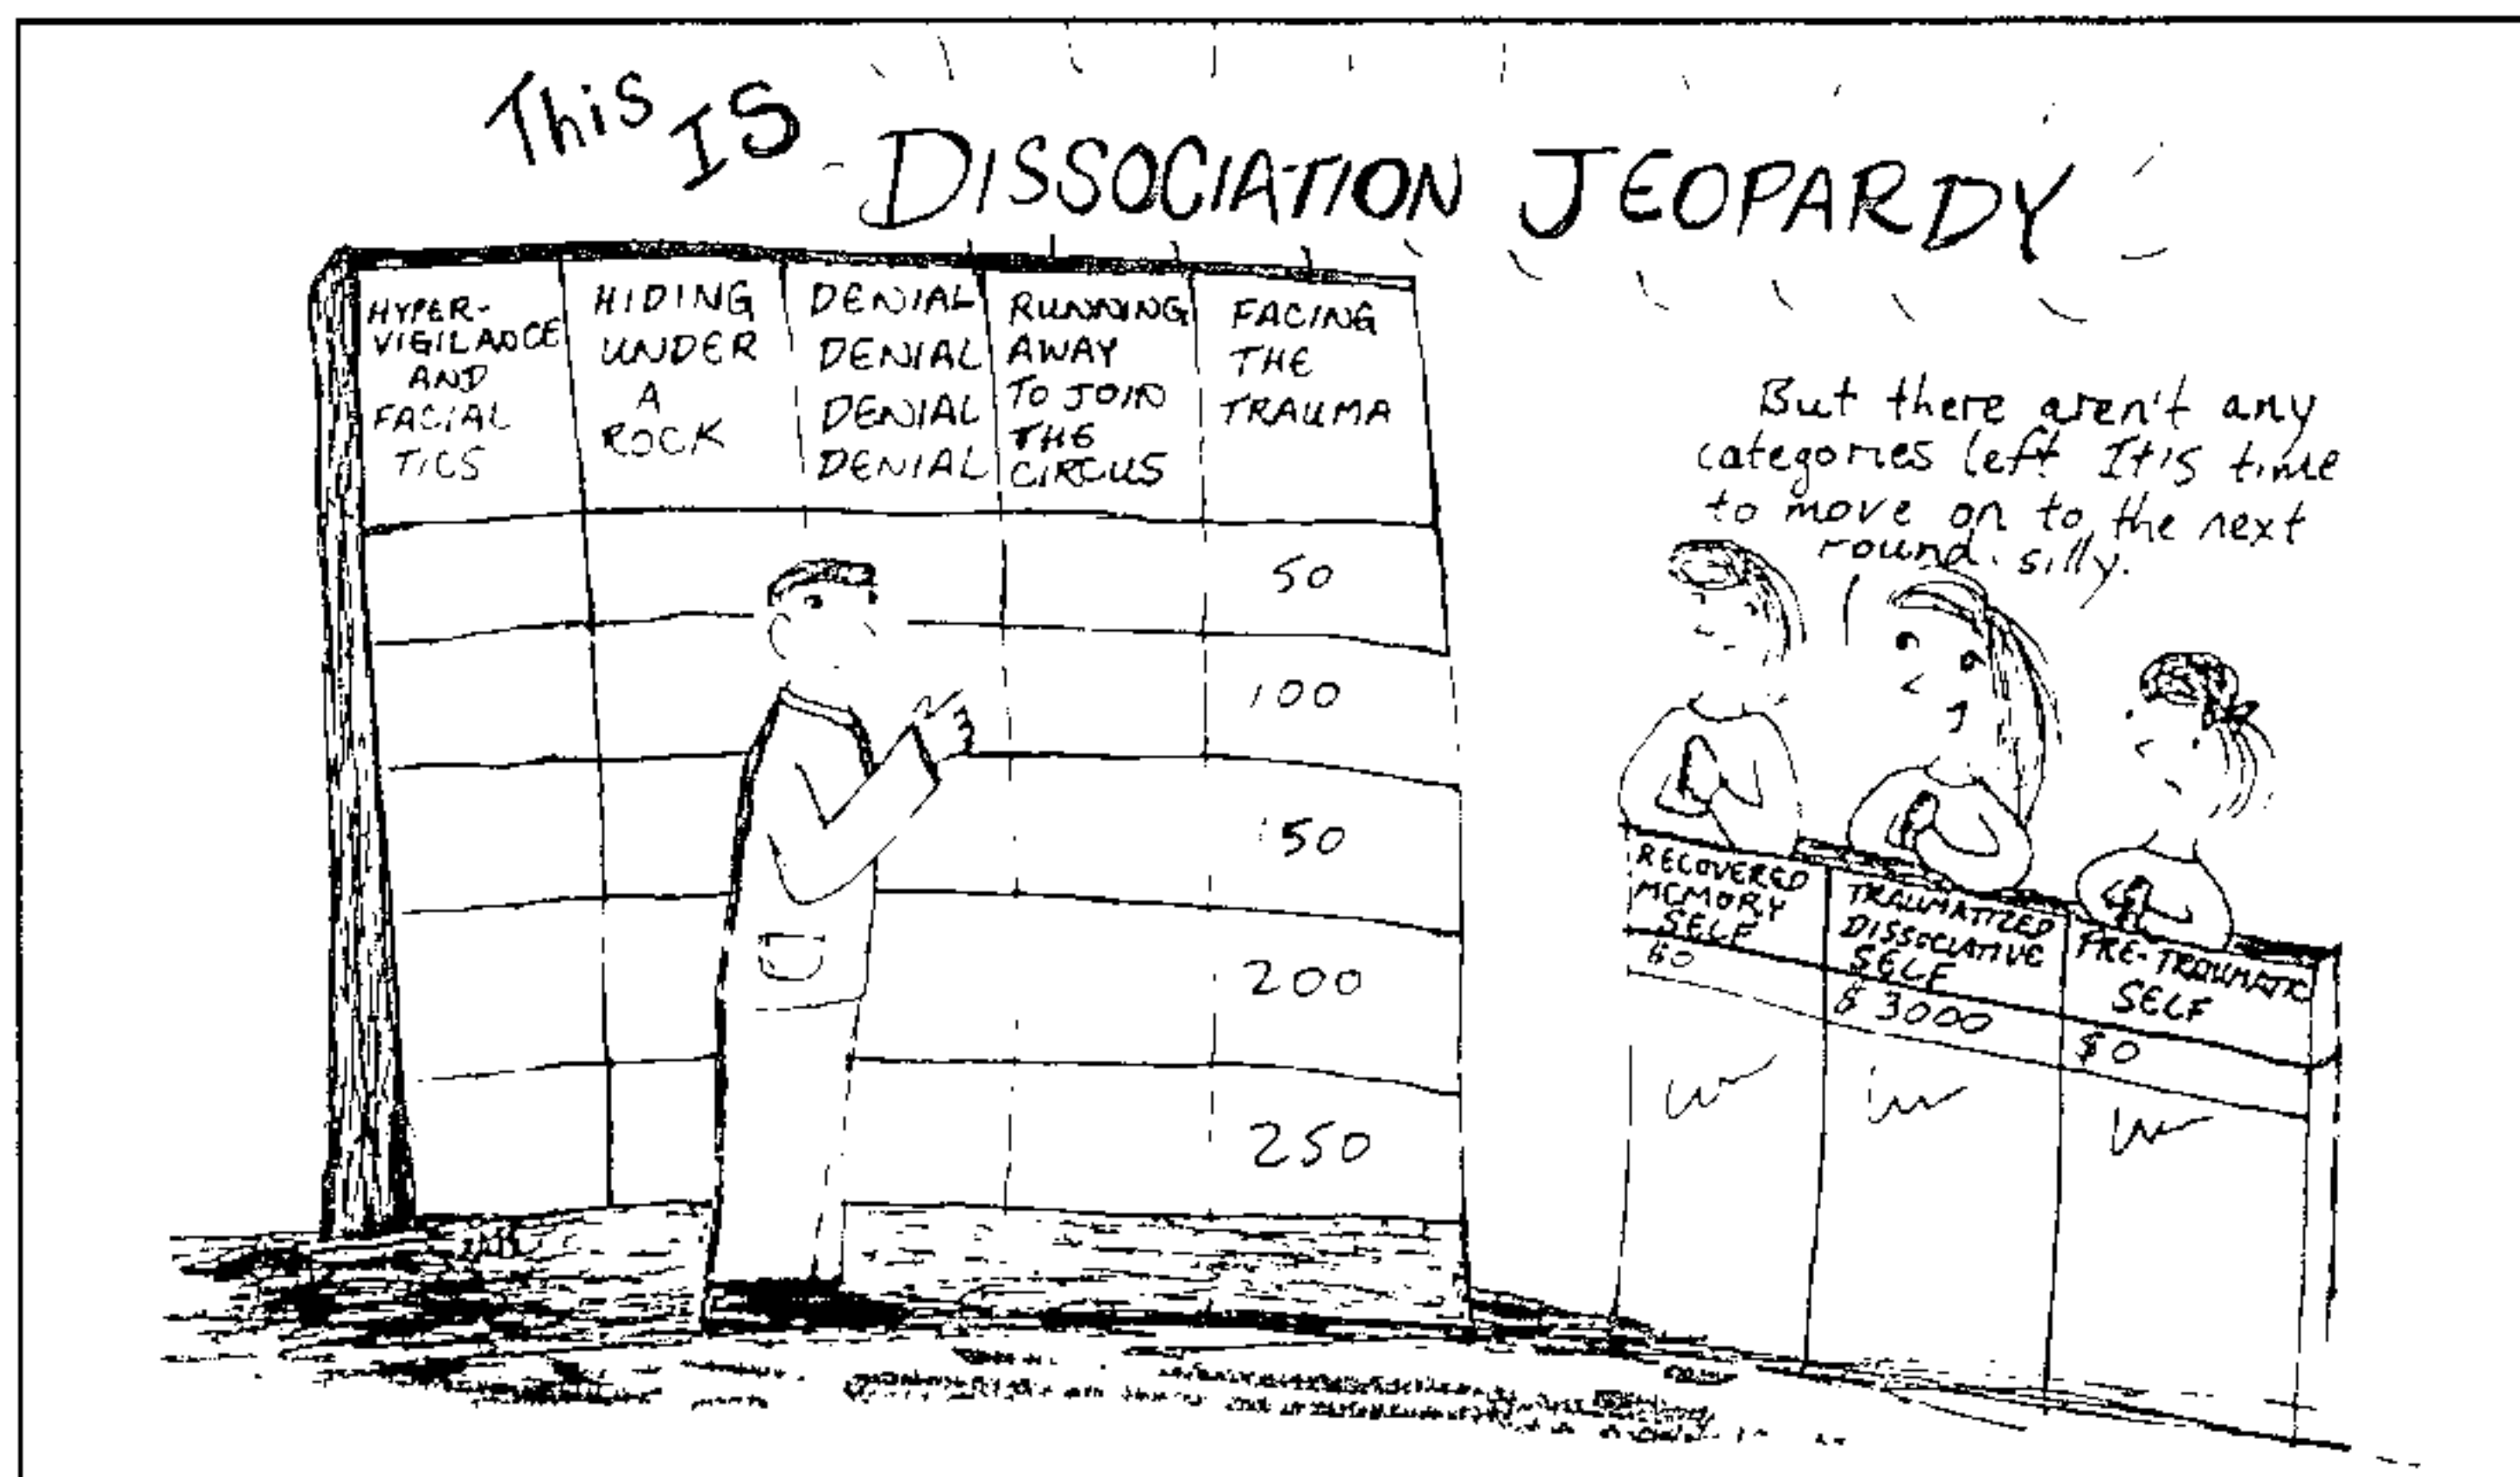 This IS DISSOCIATION JEOPARDY
HYPER-
VIGILANCE
AND
FACIAL
TICS
HIDING
UNDER
A
ROCK
DENIAL
DENIAL
DENIAL
DENIAL
RUNNING
AWAY
TO JOIN
THE
CIRCUS
FACING
THE
TRAUMA
50
100
150
200
250
But there aren't any
categories left It's time
to move on to the next
round. silly.
RECOVERED
MEMORY
SELF
$0
TRAUMATIZED
DISSOCIATIVE
SELF
$ 3000
PRE-TRAUMATIC
SELF
$0